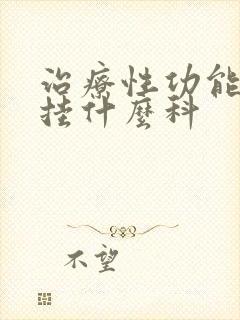 治療性功能
挂什麼科
不望